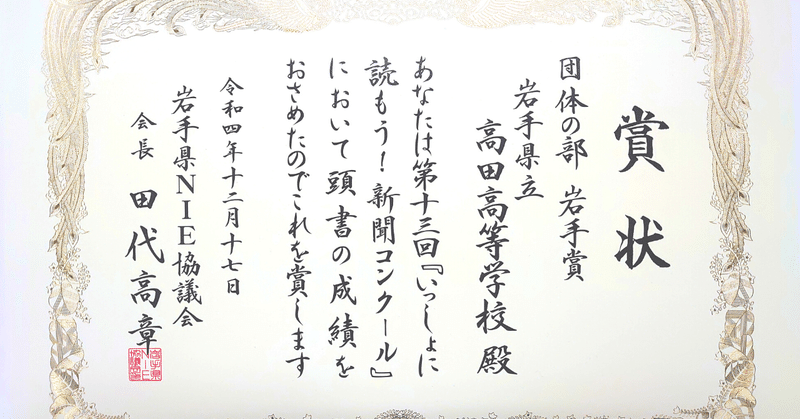 賞状
団体の部 岩手賞
岩手県立
高田高等学校 殿
あなたは第十三回『いっしょに
読もう!新聞コンクール』
において頭書の成績を
おさめたのでこれを賞します
令和四年十二月十七日
岩手県NIE協議会
会長 田代高章